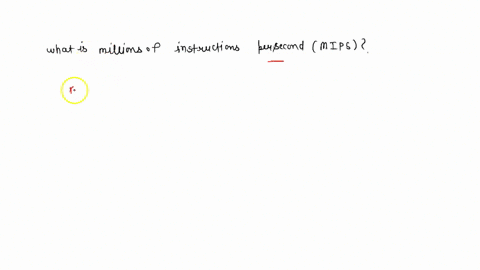 what is millions of instructions per second (MIPS)?